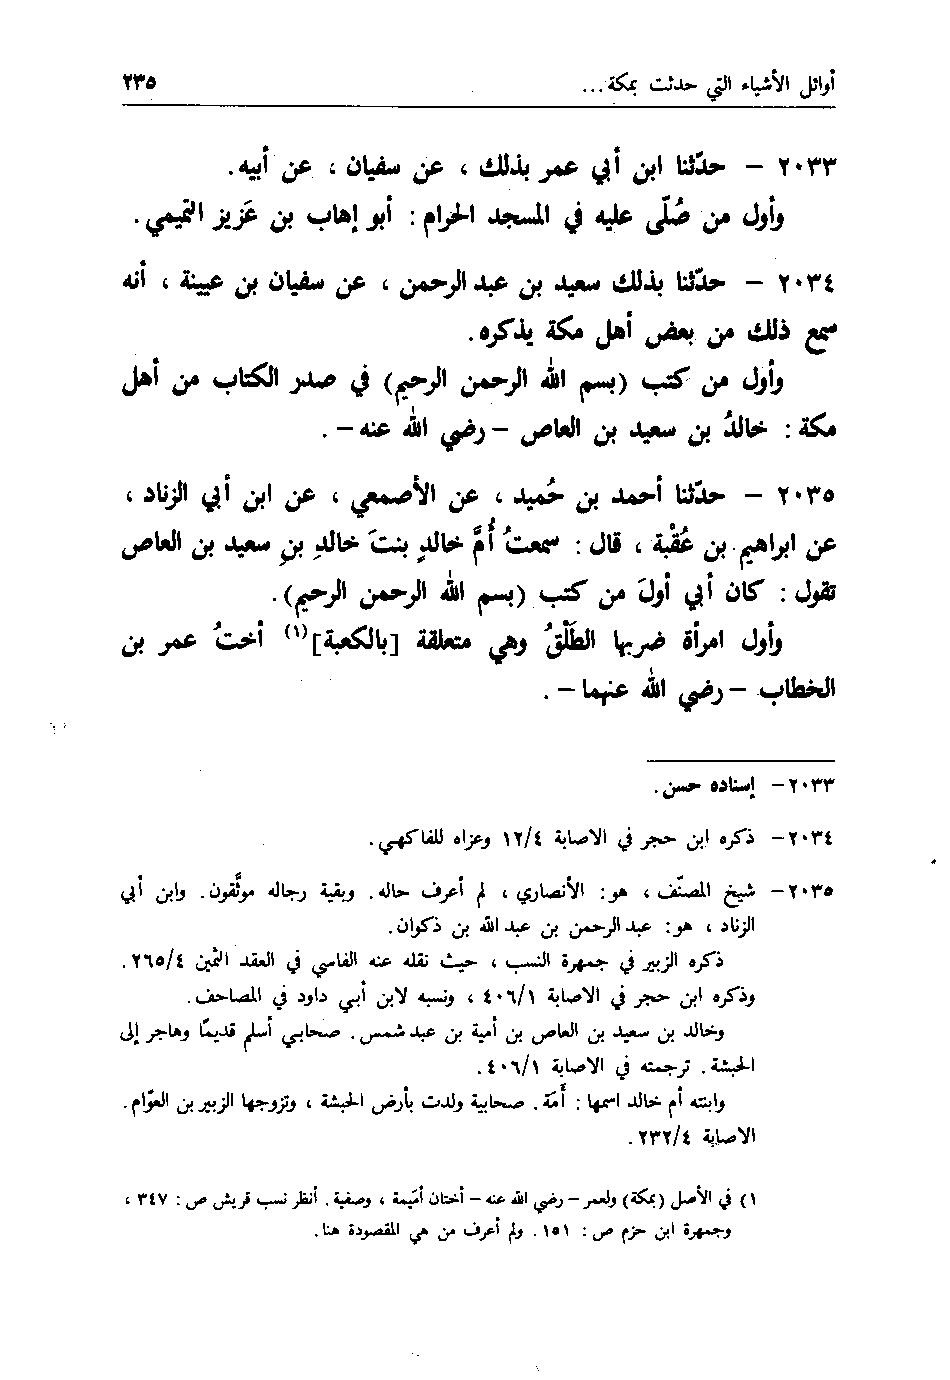 أوائل الأشياء التي حدثت بمكة...
٢٣٥
٢٠٣٣ – حدّثنا ابن أبي عمر بذلك ، عن سفيان ، عن أبيه.
وأول من صُلّى عليه في المسجد الحرام : أبو إهاب بن عَزيز التميمي.
٢٠٣٤ – حدّثنا بذلك سعيد بن عبد الرحمن ، عن سفيان بن عيينة ، أنه
سمع ذلك من بعض أهل مكة يذكره.
وأول من كتب (بسم الله الرحمن الرحيم) في صدر الكتاب من أهل
مكة : خالدُ بن سعيد بن العاص – رضي الله عنه –.
٢٠٣٥ – حدّثنا أحمد بن حُميد ، عن الأصمعي ، عن ابن أبي الزناد ،
عن ابراهيم بن عُقْبة ، قال : سمعتُ أُمَّ خالدٍ بنتَ خالدِ بنِ سعيد بن العاص
تقول : كان أبي أولَ من كتب (بسم الله الرحمن الرحيم).
وأول امرأة ضربها الطَلْقُ وهي متعلقة [بالكعبة](١) أختُ عمر بن
الخطاب – رضي الله عنهما –.
٢٠٣٣– إسناده حسن.
٢٠٣٤– ذكره ابن حجر في الاصابة ١٢/٤ وعزاه للفاكهي.
٢٠٣٥– شيخ المصنّف ، هو: الأنصاري ، لم أعرف حاله. وبقية رجاله موثّقون. وابن أبي
الزناد ، هو: عبد الرحمن بن عبد الله بن ذكوان.
ذكره الزبير في جمهرة النسب ، حيث نقله عنه الفاسي في العقد الثمين ٢٦٥/٤.
وذكره ابن حجر في الاصابة ٤٠٦/١ ، ونسبه لابن أبي داود في المصاحف.
وخالد بن سعيد بن العاص بن أمية بن عبد شمس. صحابي أسلم قديمًا وهاجر إلى
الحبشة. ترجمته في الاصابة ٤٠٦/١.
وابنته أم خالد اسمها : أَمَة. صحابية ولدت بأرض الحبشة ، وتزوجها الزبير بن العوّام.
الاصابة ٢٣٢/٤.
١) في الأصل (بمكة) ولعمر – رضي الله عنه – أختان أُميمة ، وصفية. أنظر نسب قريش ص : ٣٤٧ ،
وجمهرة ابن حزم ص : ١٥١. ولم أعرف من هي المقصودة هنا.